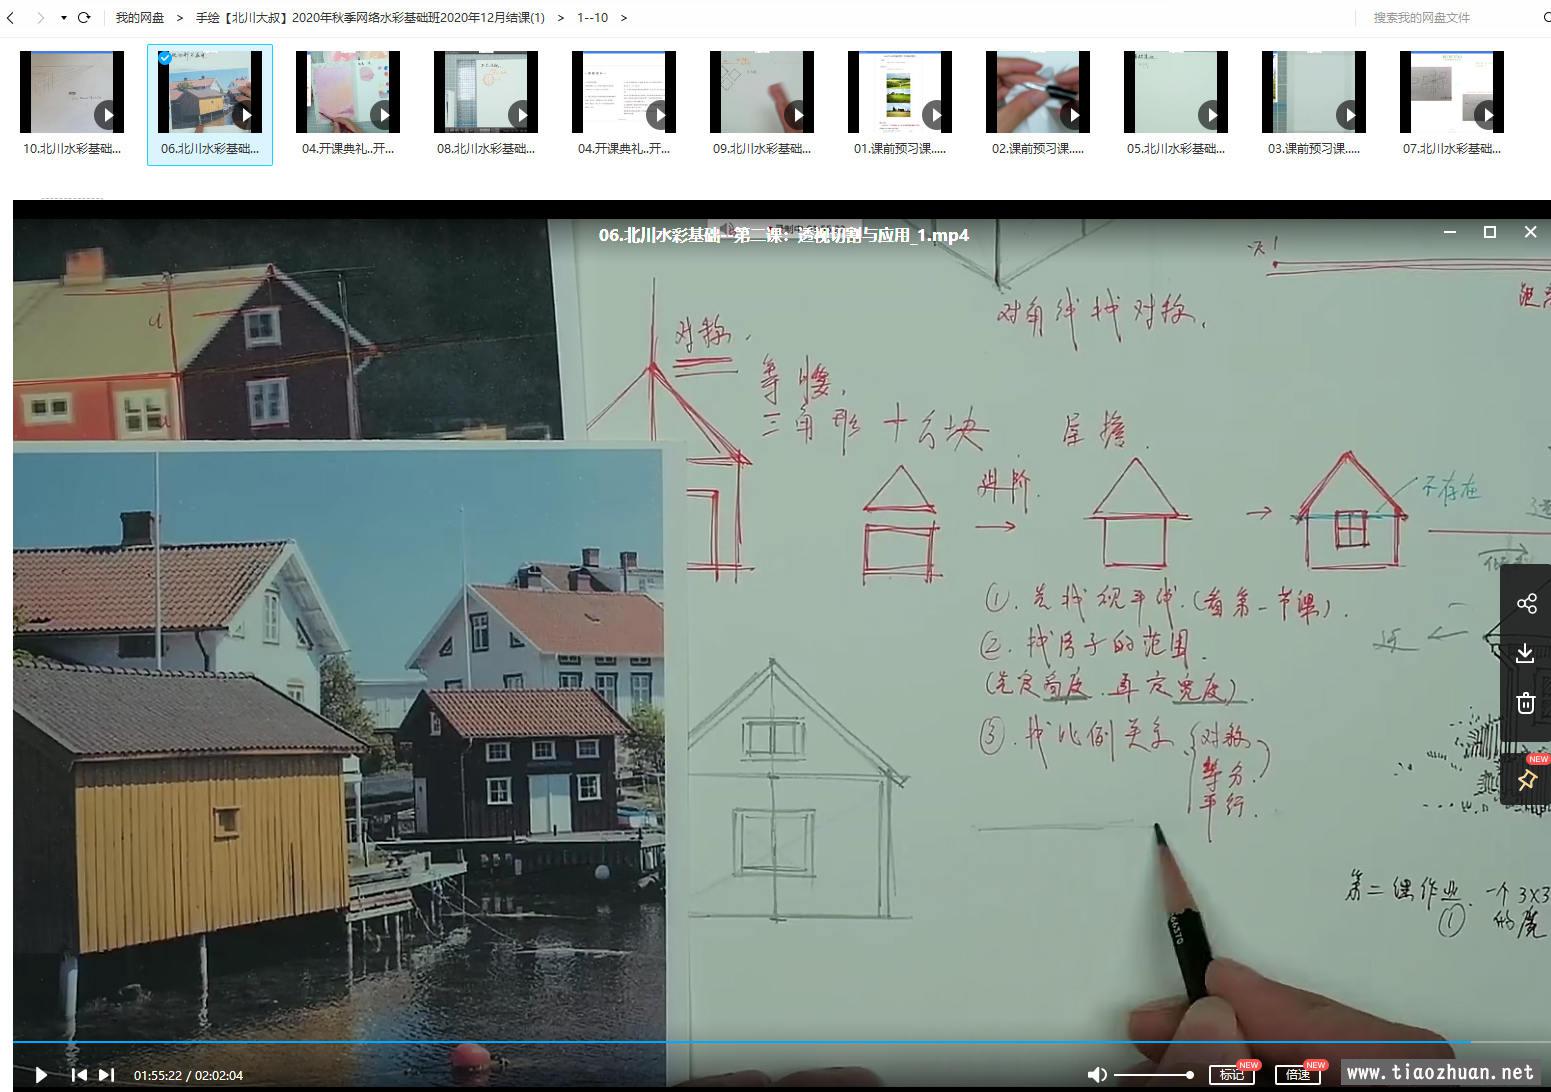 我的网盘 > 手绘【北川大叔】2020年秋季网络水彩基础班2020年12月结课(1) > 1--10 >
搜索我的网盘文件
10.北川水彩基础...
06.北川水彩基础...
04.开课典礼..开...
08.北川水彩基础...
04.开课典礼..开...
09.北川水彩基础...
01.课前预习课.....
02.课前预习课.....
05.北川水彩基础...
03.课前预习课.....
07.北川水彩基础...
06.北川水彩基础--第二课：透视切割与应用_1.mp4
对角线找对称.
对称.
等腰.
三角形+方块
屋檐.
进阶.
→
→
不存在
①.先找视平线.(看第一节课).
②.找房子的范围.
(先定高度.再定宽度).
近 ←
③.找比例关系(对称
等分.
平行.)
NEW
第二课作业.一个3X3
① 的魔
01:55:22 / 02:02:04
标记
NEW
倍速
NEW
www.tiaozhuan.net